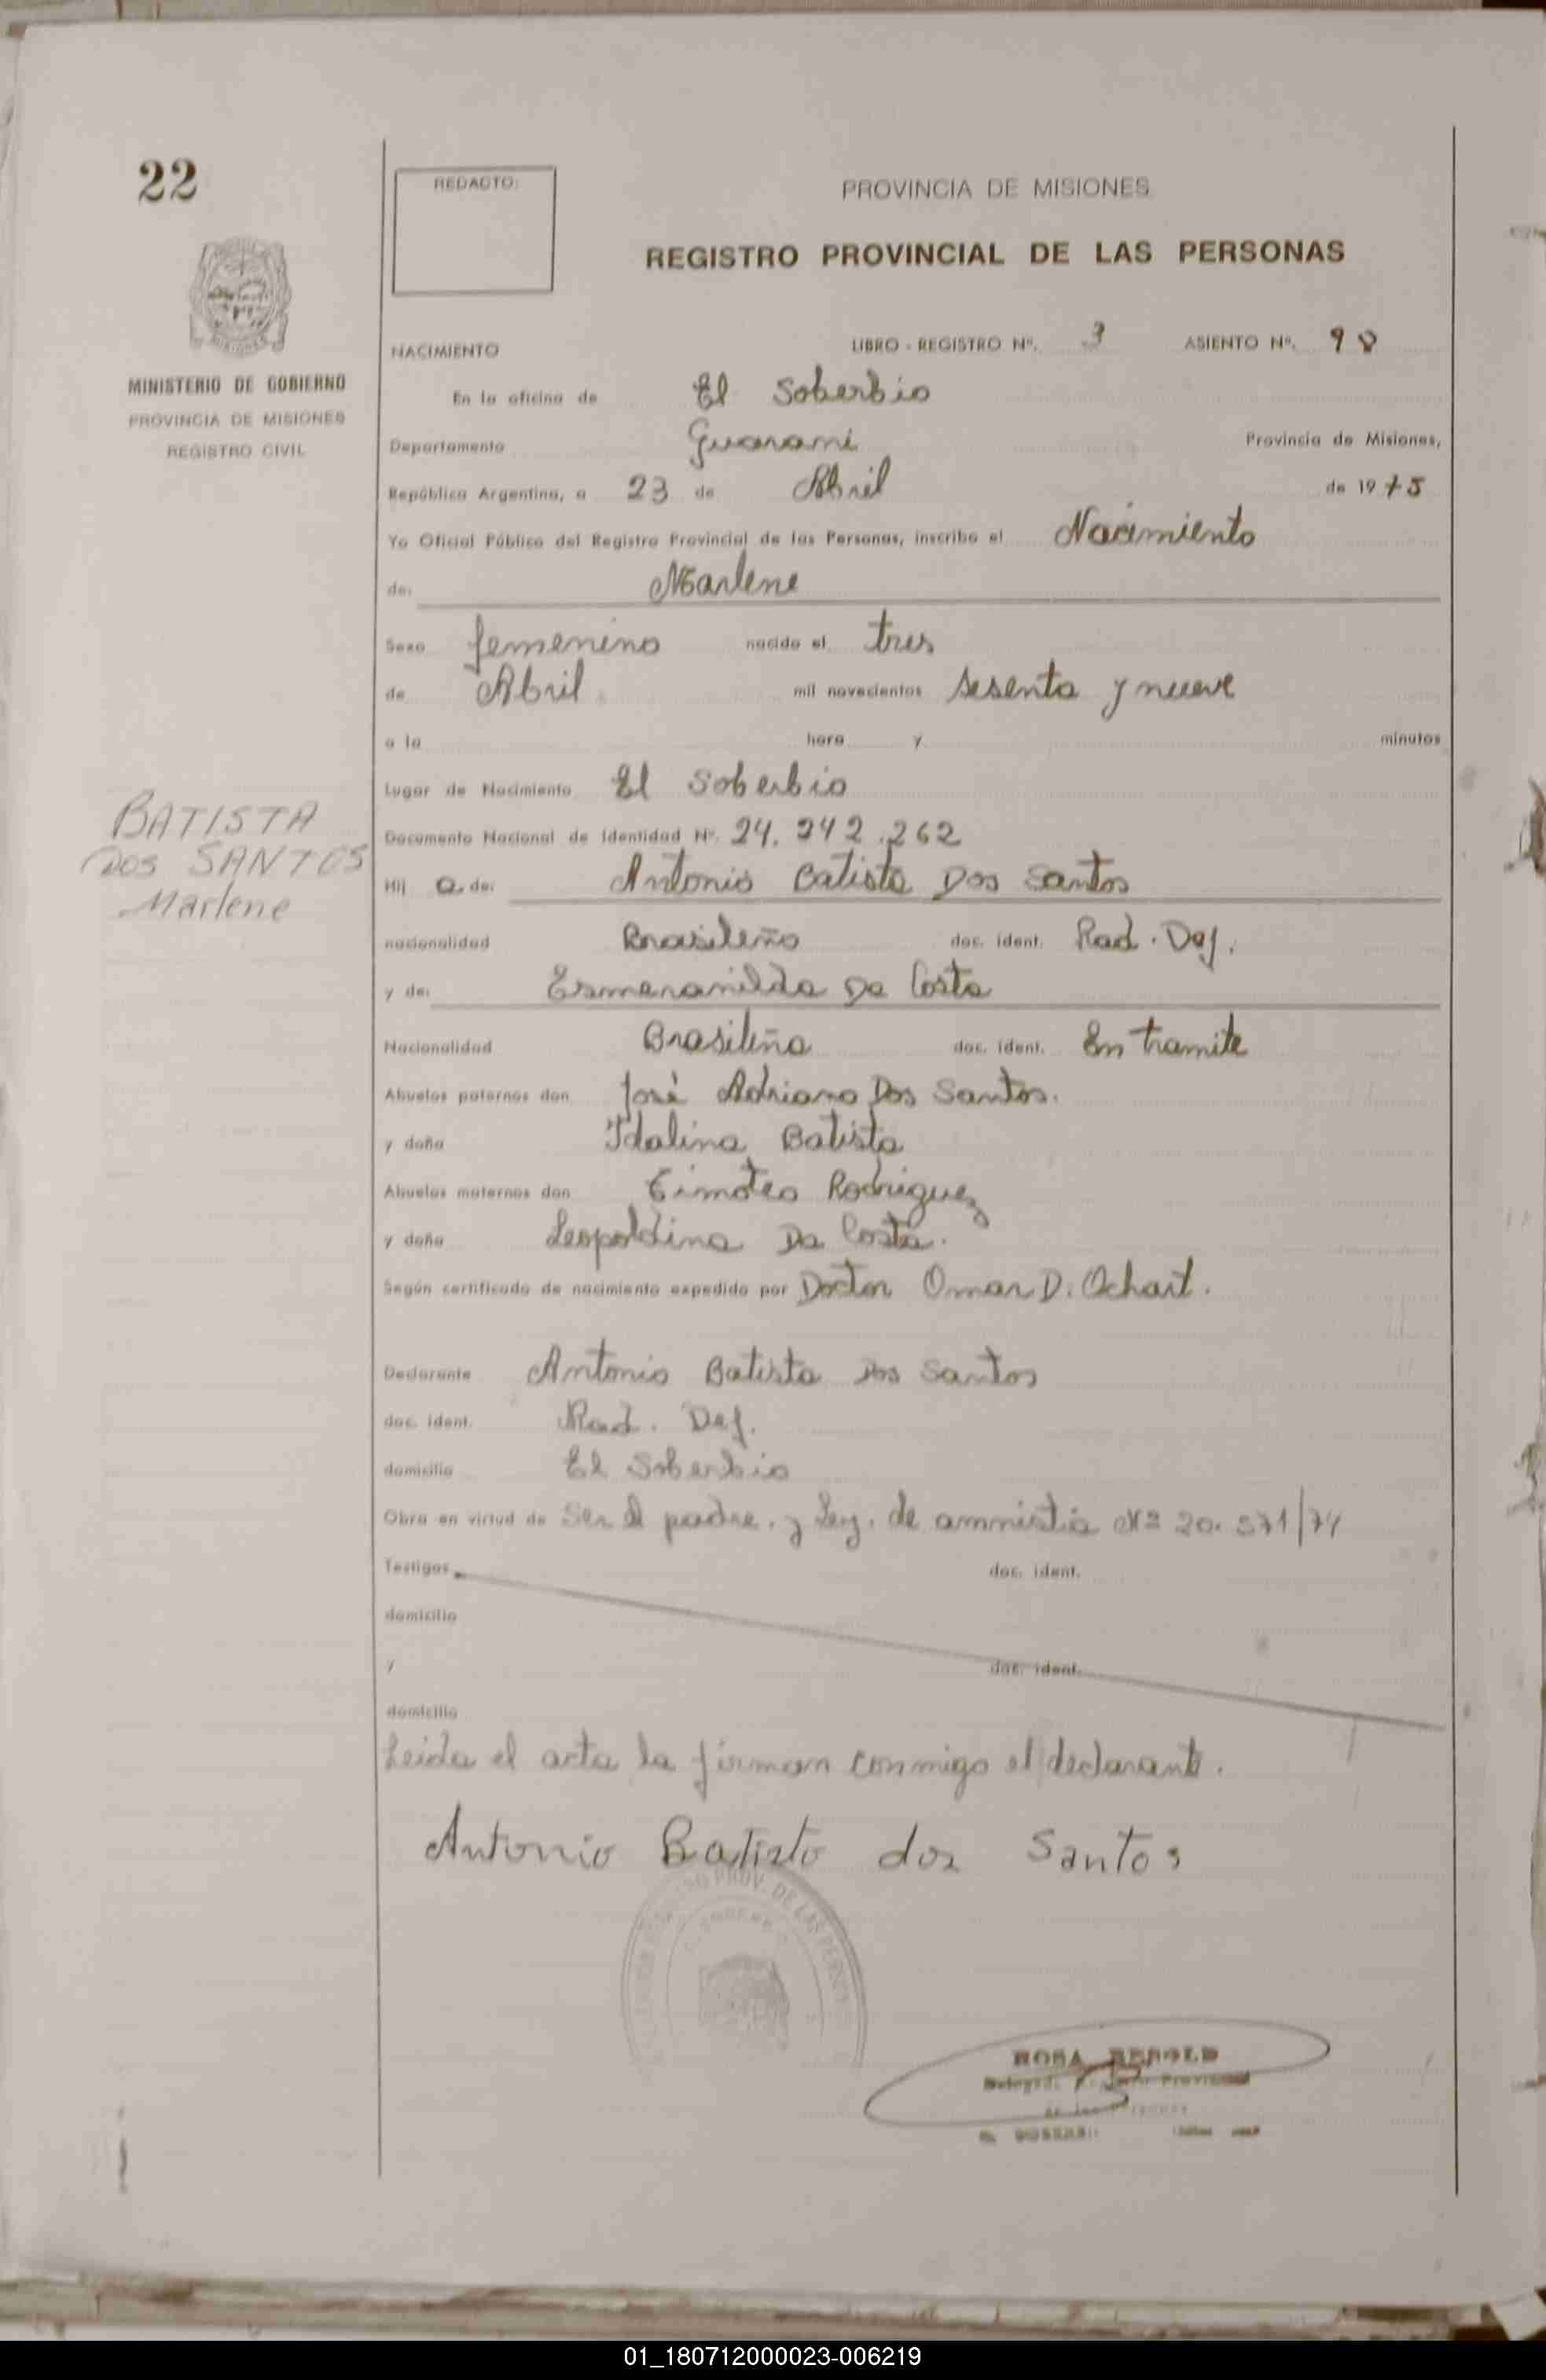 22
REDACTO:
PROVINCIA DE MISIONES
REGISTRO PROVINCIAL DE LAS PERSONAS
MINISTERIO DE GOBIERNO
PROVINCIA DE MISIONES
REGISTRO CIVIL
NACIMIENTO LIBRO - REGISTRO Nº. 3 ASIENTO Nº. 98
En la oficina de El Soberbio
Departamento Guarani Provincia de Misiones,
República Argentina, a 23 de Abril de 1975
Yo Oficial Público del Registro Provincial de las Personas, inscribo el Nacimiento
de: Marlene
Sexo femenino nacido el tres
de Abril mil novecientos sesenta y nueve
a la hora y minutos
Lugar de Nacimiento El Soberbio
BATISTA
DOS SANTOS
Marlene
Documento Nacional de Identidad Nº. 24.242.262
Hij a de: Antonio Batista Dos Santos
nacionalidad Brasileño doc. ident. Rad. Def.
y de: Esmeranilda Da Costa
Nacionalidad Brasileña doc. ident. En tramite
Abuelos paternos don José Adriano Dos Santos.
y doña Idalina Batista
Abuelos maternos don Timoteo Rodriguez
y doña Leopoldina Da Costa.
Según certificado de nacimiento expedido por Doctor Omar D. Ochart.
Declarante Antonio Batista Dos Santos
doc. ident. Rad. Def.
domicilio El Soberbio
Obra en virtud de Ser el padre. y Ley. de amnistia Nº 20.571/74
Testigos doc. ident.
domicilio
y doc. ident.
domicilio
Leida el acta la firman conmigo el declarante.
Antonio Batisto dos Santos
PROV. DE LAS
ROSA
01_180712000023-006219